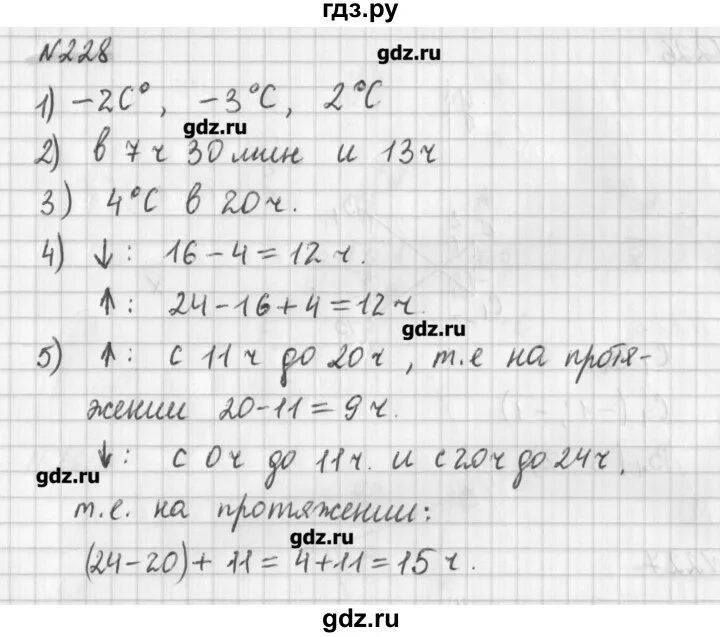 гдз.ру
№228
gdz.ru
1) -2С°, -3°С, 2°С
gdz.ru
2) в 7 ч 30 мин и 13 ч
3) 4°С в 20 ч.
4) ↓: 16 - 4 = 12 ч.
↑: 24 - 16 + 4 = 12 ч.
gdz.ru
5) ↑: с 11 ч до 20 ч, т.е на протя-
жении 20 - 11 = 9 ч.
gdz.ru
↓: с 0 ч до 11 ч. и с 20 ч до 24 ч,
т.е. на протяжении:
gdz.ru
(24 - 20) + 11 = 4 + 11 = 15 ч.
gdz.ru